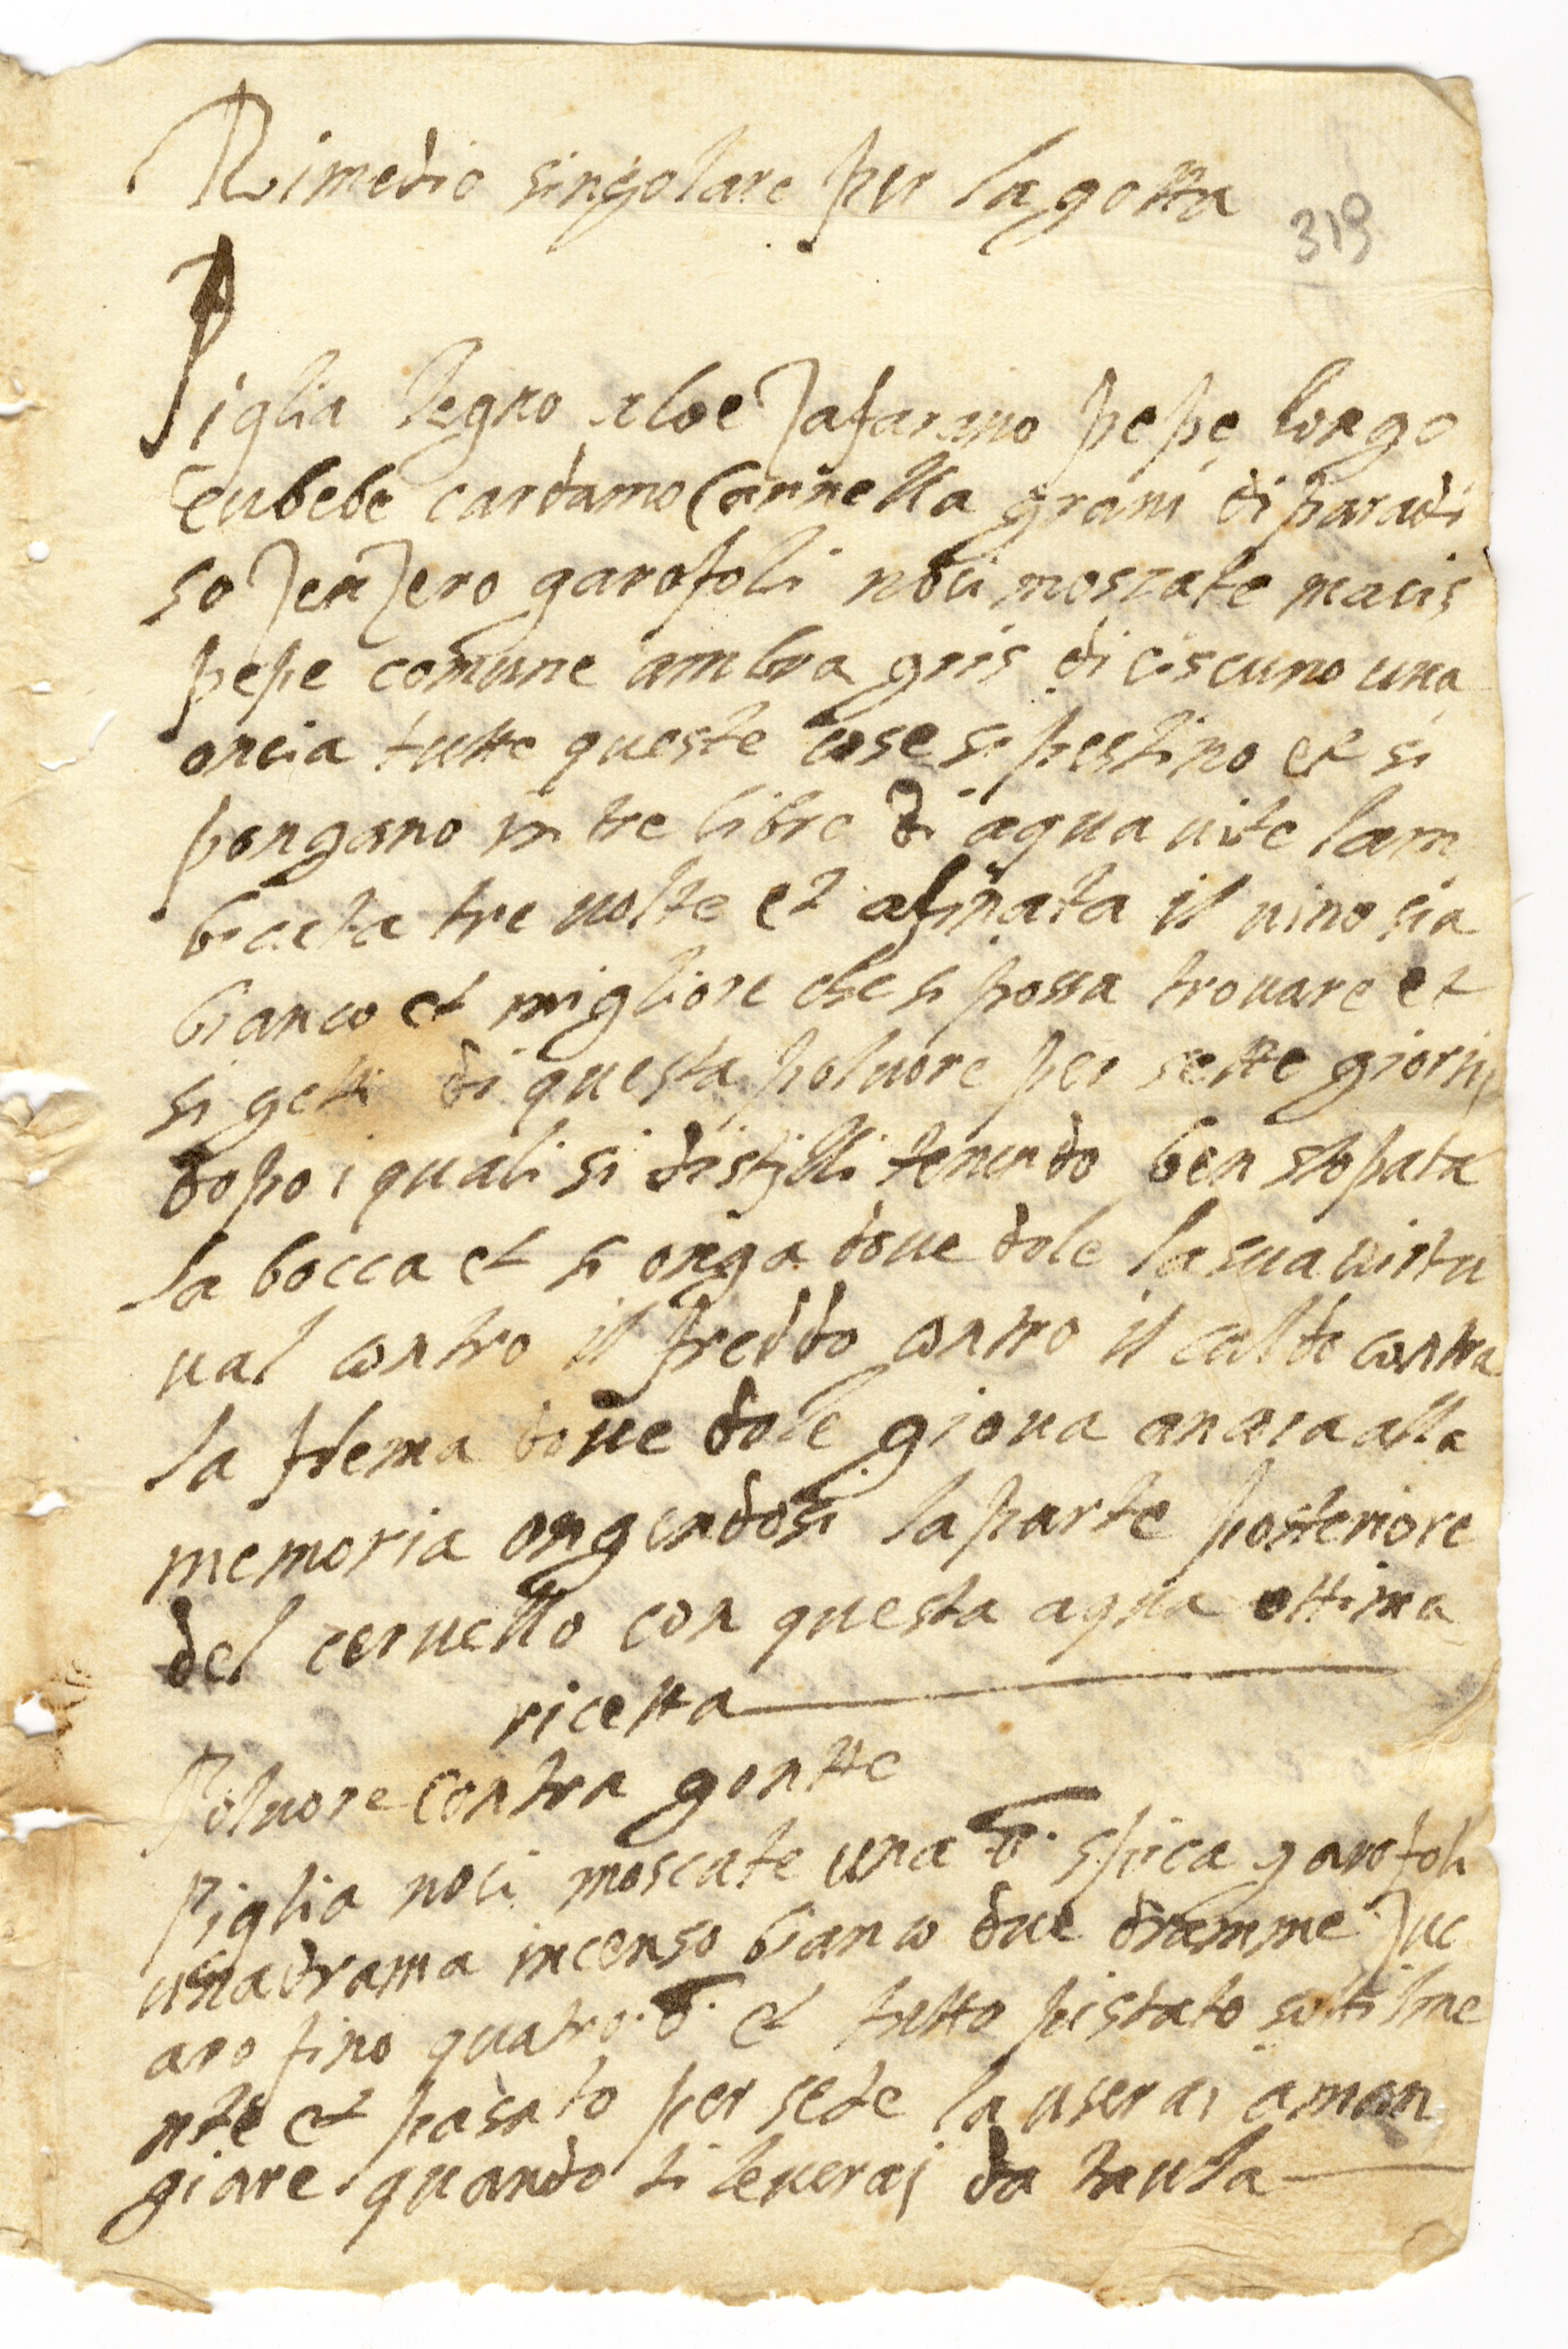 Rimedio singolare per la gotta
319
Piglia legno aloe zafarano pepe longo
cubebe cardamo Cannella grani di paradi
so zenzero garofoli noci moscate macis
pepe comune ambra gris di ciscuno una
oncia tutte queste cose si pestino et si
pongano in tre libre di aqua vite lam
bicata tre volte et afinata il vino sia
bianco et migliore che si possa trovare et
si getti di questa polvore per sette giorni
dopo i quali si distilli tenendo ben stopata
la bocca et si onga dove dole la sua virtu
val contro il freddo contro il caldo contra
la flema dove dole giova ancora alla
memoria ongendosi la parte posteriore
del cervello con questa aqua ottima
ricetta
Polvore contra gontte
Piglia noci moscate una spica garofoli
una drama incenso bianco due dramme zuc
aro fino quatro et tutto pistato sottilme
nte et pasato per sede la userai a man
giare quando ti leverai da tavla